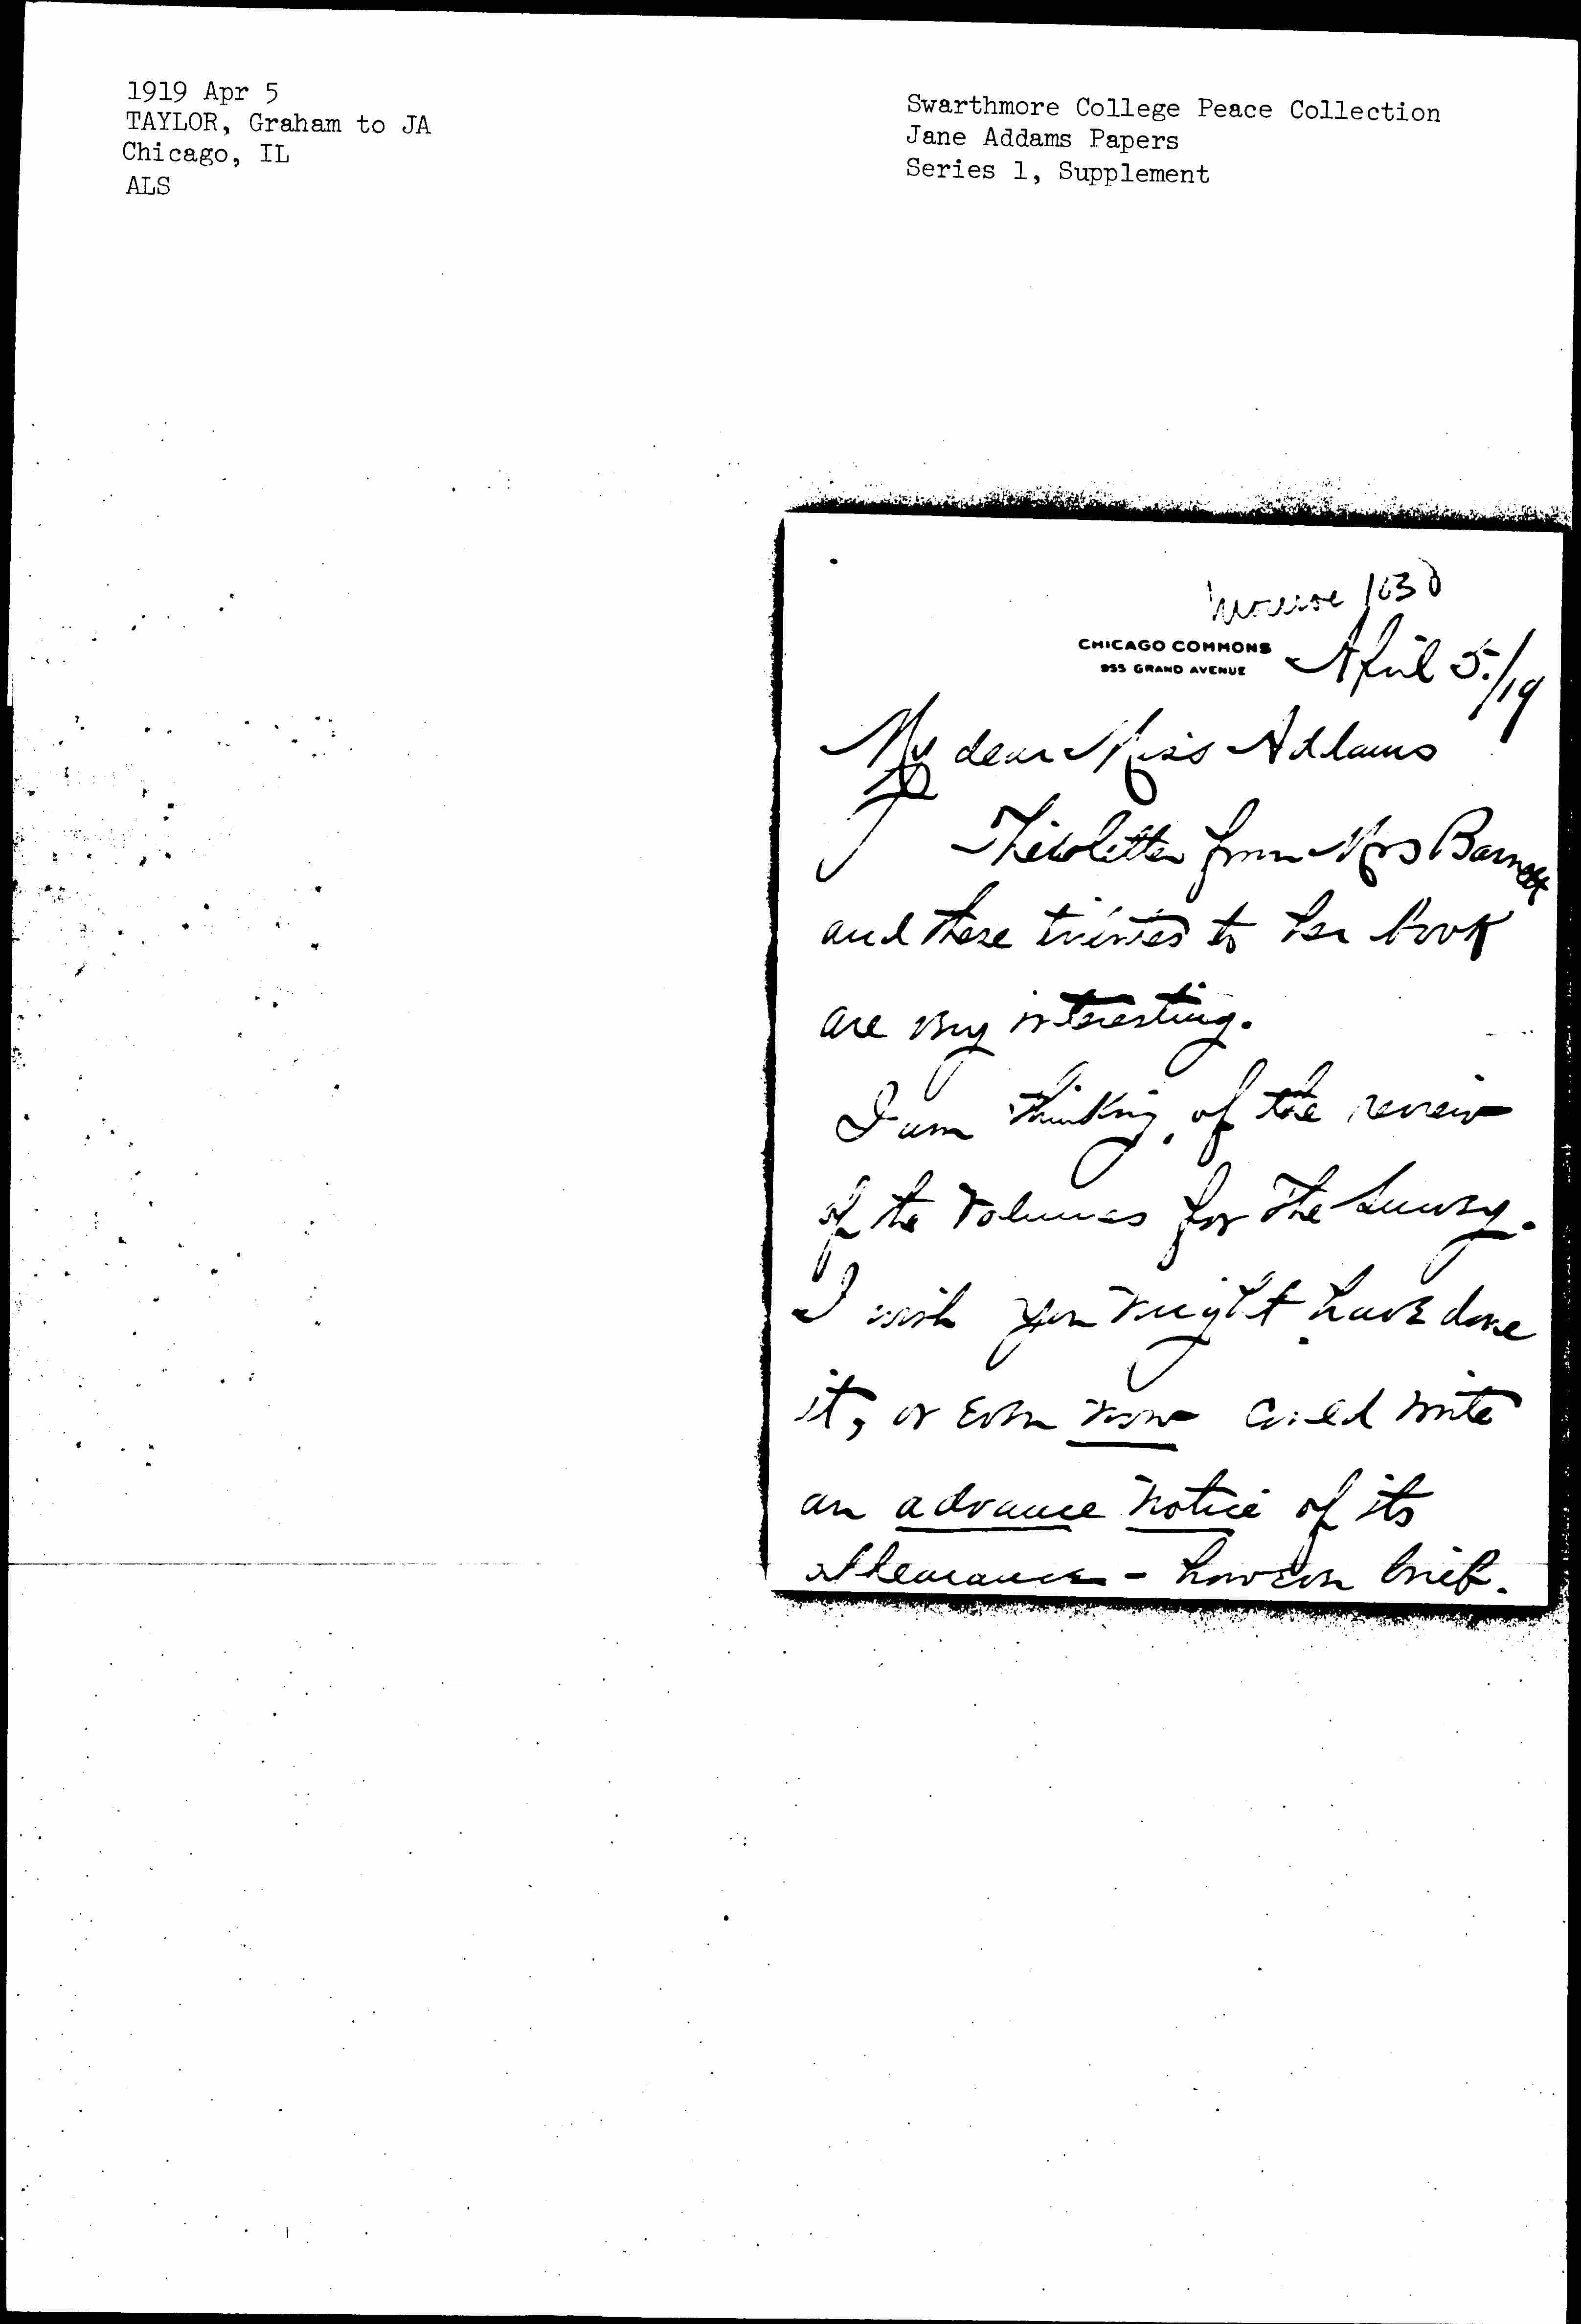 1919 Apr 5
TAYLOR, Graham to JA
Chicago, IL
ALS
Swarthmore College Peace Collection
Jane Addams Papers
Series 1, Supplement
Monroe 1030
CHICAGO COMMONS
955 GRAND AVENUE
April 5./19
My dear Miss Addams
This letter from Mrs Barnett
and these tributes to her book
are very interesting.
I am thinking of the review
of the volumes for The Survey.
I wish you might have done
it, or even now could write
an advance notice of its
appearance - however brief.